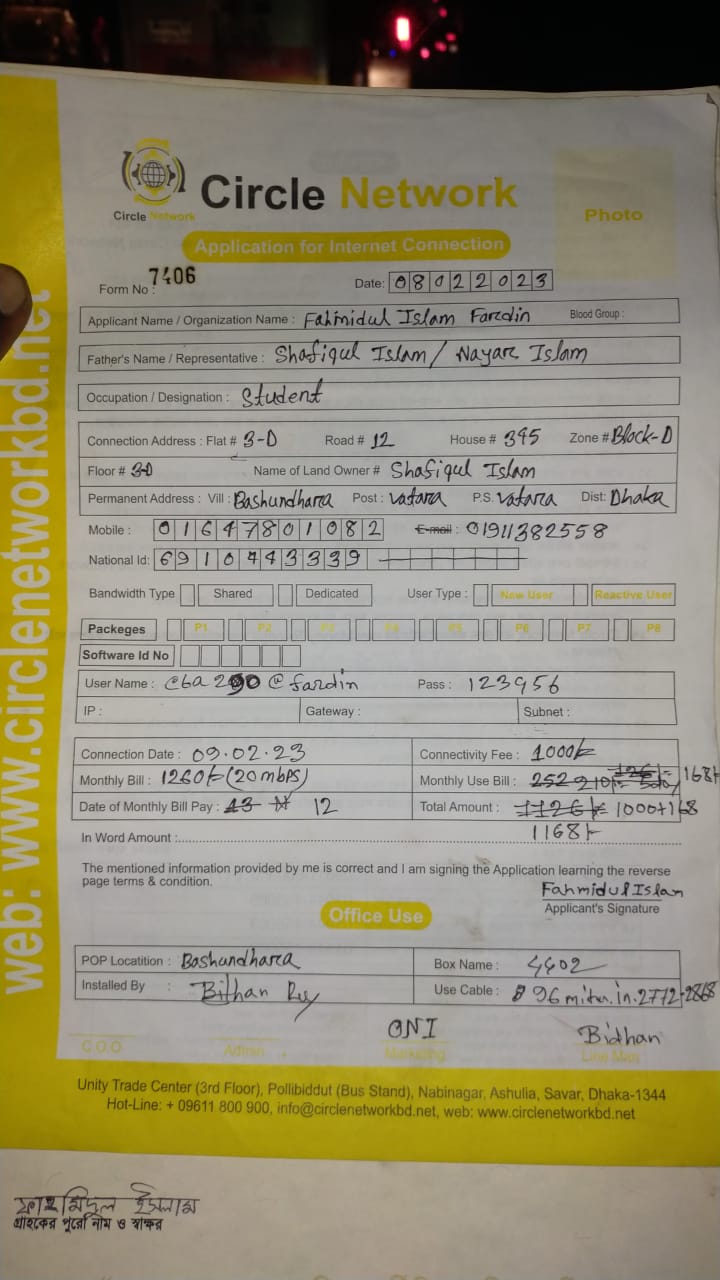 Circle Network
Circle Network
Photo
Application for Internet Connection
Form No : 7406
Date: 08022023
Applicant Name / Organization Name : Fahmidul Islam Fardin Blood Group :
Father's Name / Representative : Shafiqul Islam / Nayare Islam
Occupation / Designation : Student
Connection Address : Flat # 3-D Road # 12 House # 395 Zone # Block-D
Floor # 3D Name of Land Owner # Shafiqul Islam
Permanent Address : Vill : Bashundhara Post : Vatara P.S. Vatara Dist: Dhaka
Mobile : 01647801082 E-mail : 01911382558
National Id: 6910443339
Bandwidth Type Shared Dedicated User Type : New User Reactive User
Packeges P1 P2 P3 P4 P5 P6 P7 P8
Software Id No
User Name : @fardin Pass : 123456
IP : Gateway : Subnet :
Connection Date : 09.02.23 Connectivity Fee : 1000/-
Monthly Bill : 1260/- (20 mbps) Monthly Use Bill : 252 210/- 168/-
Date of Monthly Bill Pay : 13 12 Total Amount : 1126/- 1000+168
In Word Amount : 1168/-
The mentioned information provided by me is correct and I am signing the Application learning the reverse
page terms & condition.
Fahmidul Islam
Applicant's Signature
Office Use
POP Locatition : Bashundhara Box Name : 4402
Installed By : Bithan Roy Use Cable : 96 in. 2772-2868
ONI Bidhan
C.O.O Admin Marketing Line Man
Unity Trade Center (3rd Floor), Pollibiddut (Bus Stand), Nabinagar, Ashulia, Savar, Dhaka-1344
Hot-Line: + 09611 800 900, info@circlenetworkbd.net, web: www.circlenetworkbd.net
web: www.circlenetworkbd.net
ফাহমিদুল ইসলাম
গ্রাহকের পুরো নাম ও স্বাক্ষর